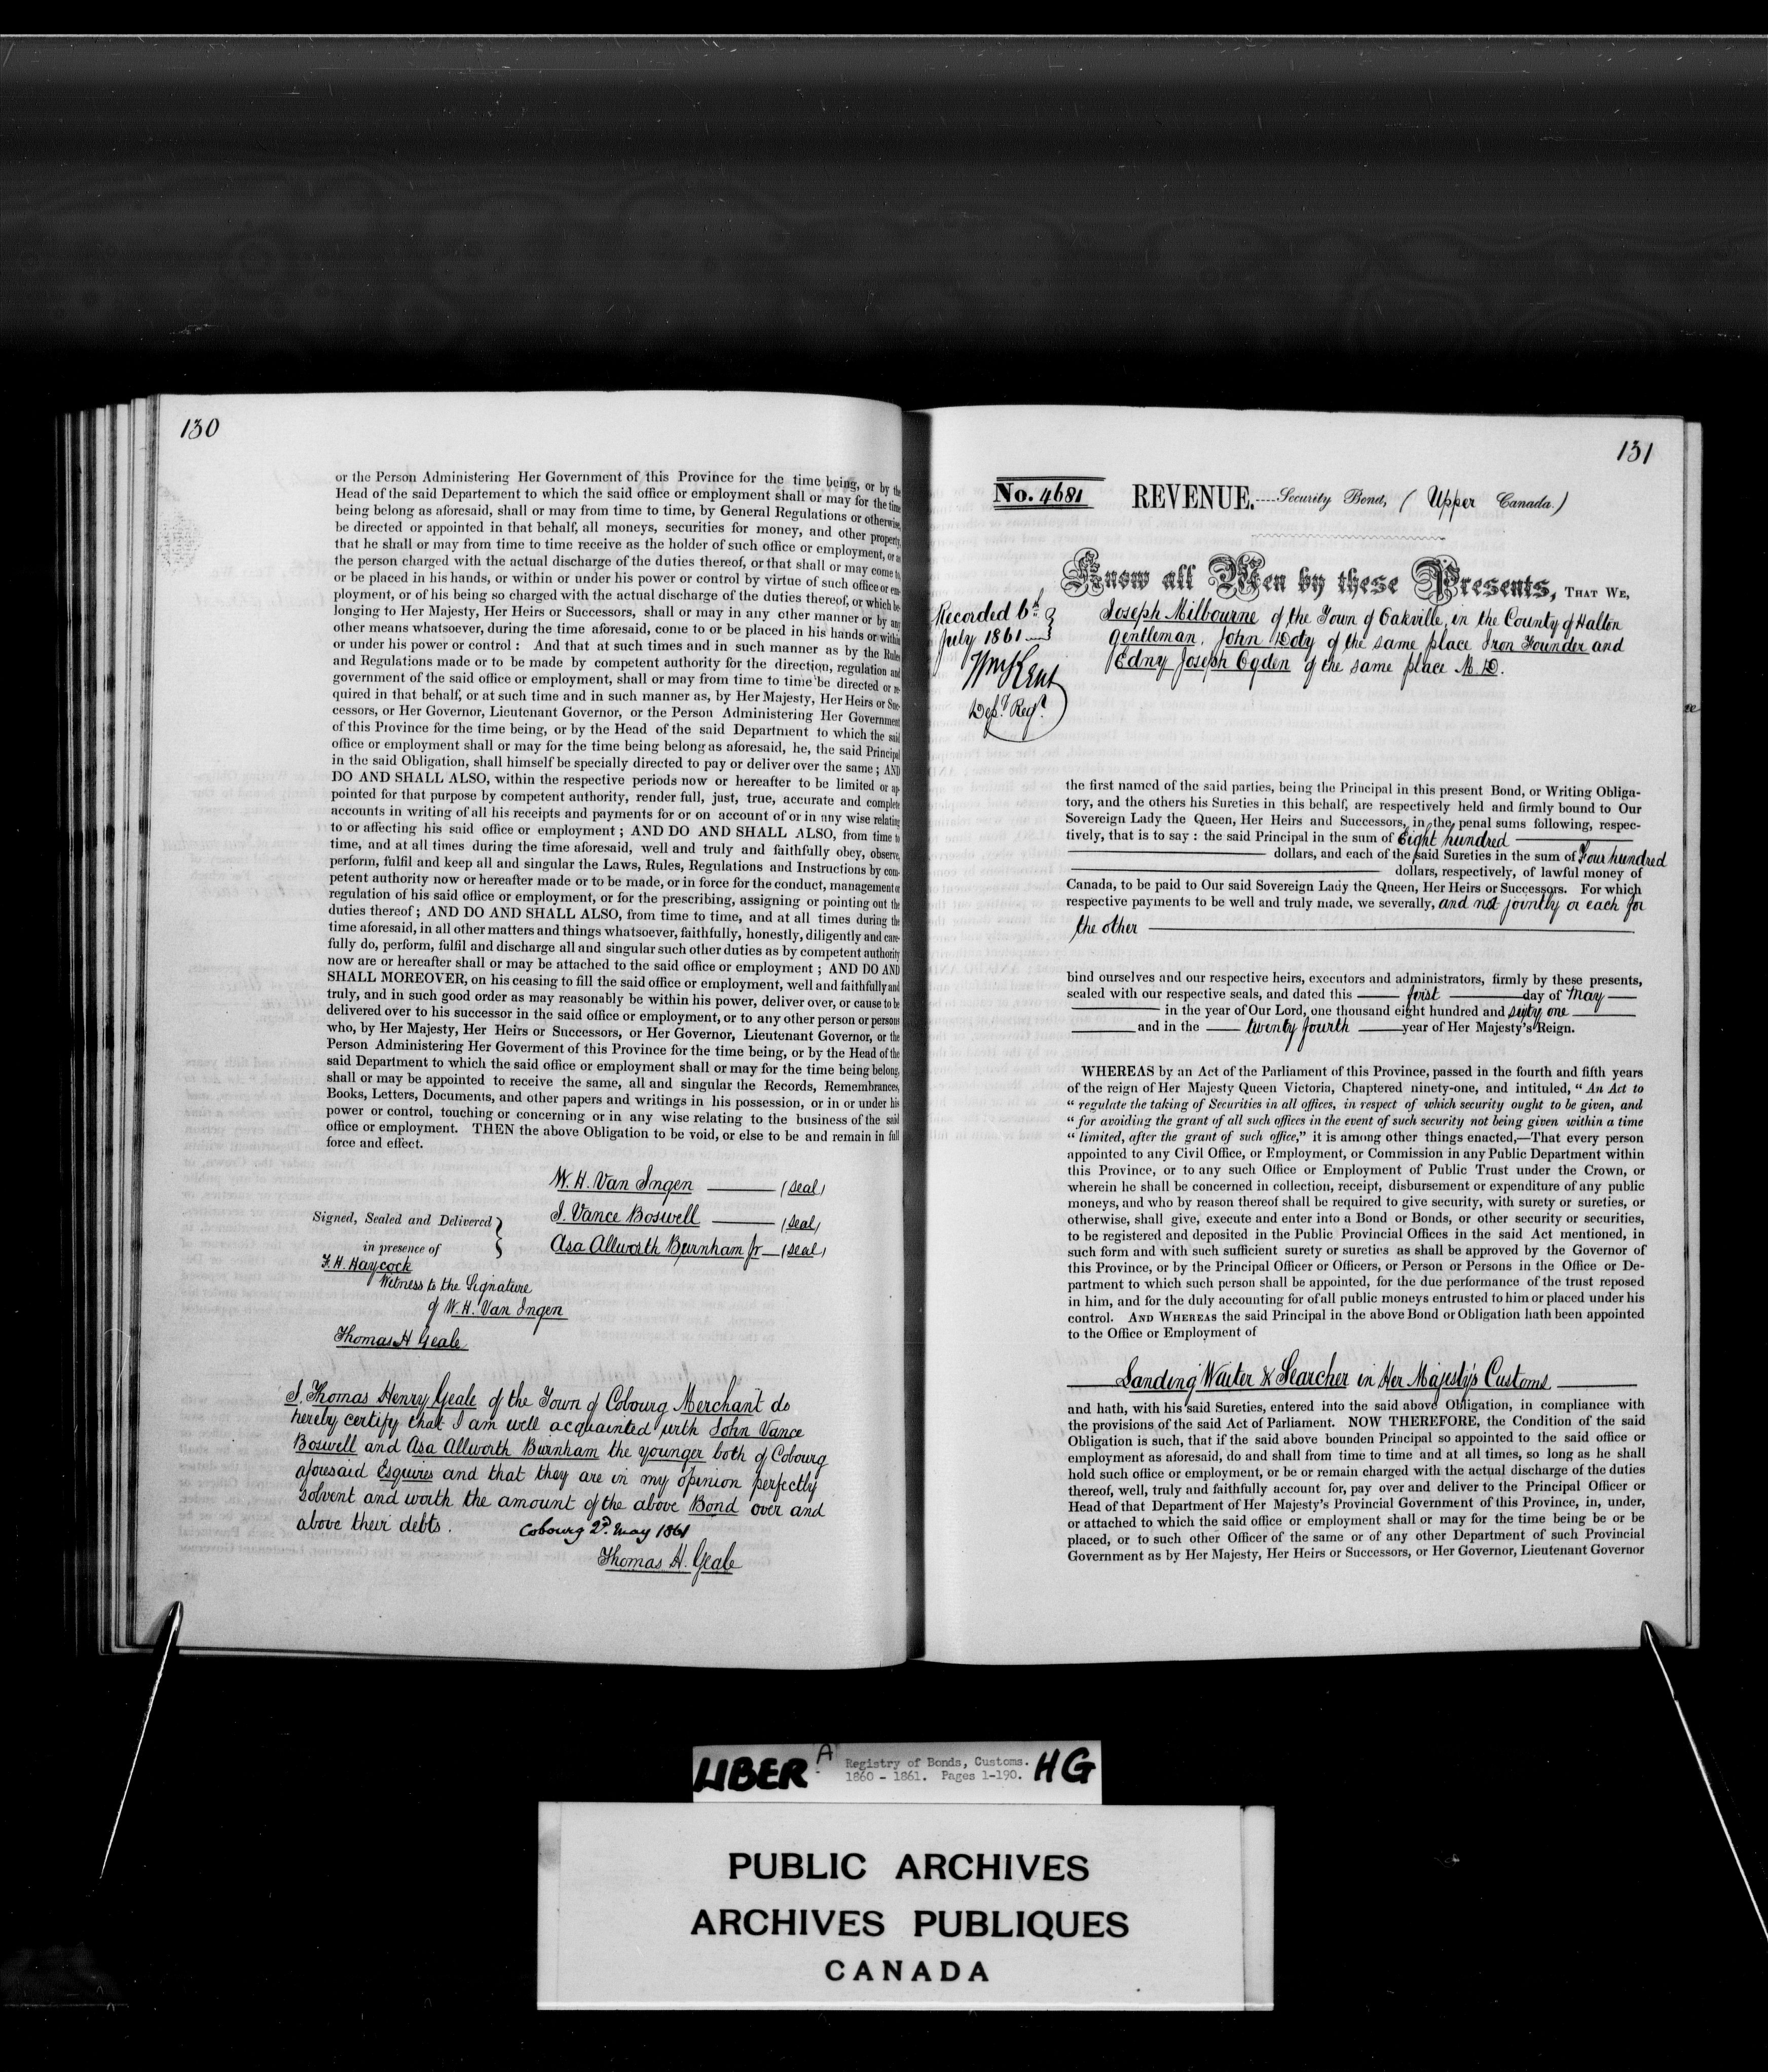 130
or the Person Administering Her Government of this Province for the time being, or by the
Head of the said Departement to which the said office or employment shall or may for the time
being belong as aforesaid, shall or may from time to time, by General Regulations or otherwise,
be directed or appointed in that behalf, all moneys, securities for money, and other property,
that he shall or may from time to time receive as the holder of such office or employment, or as
the person charged with the actual discharge of the duties thereof, or that shall or may come to,
or be placed in his hands, or within or under his power or control by virtue of such office or em-
ployment, or of his being so charged with the actual discharge of the duties thereof, or which be-
longing to Her Majesty, Her Heirs or Successors, shall or may in any other manner or by any
other means whatsoever, during the time aforesaid, come to or be placed in his hands or within
or under his power or control : And that at such times and in such manner as by the Rules
and Regulations made or to be made by competent authority for the direction, regulation and
government of the said office or employment, shall or may from time to time be directed or re-
quired in that behalf, or at such time and in such manner as, by Her Majesty, Her Heirs or Suc-
cessors, or Her Governor, Lieutenant Governor, or the Person Administering Her Government
of this Province for the time being, or by the Head of the said Department to which the said
office or employment shall or may for the time being belong as aforesaid, he, the said Principal
in the said Obligation, shall himself be specially directed to pay or deliver over the same ; AND
DO AND SHALL ALSO, within the respective periods now or hereafter to be limited or ap-
pointed for that purpose by competent authority, render full, just, true, accurate and complete
accounts in writing of all his receipts and payments for or on account of or in any wise relating
to or affecting his said office or employment ; AND DO AND SHALL ALSO, from time to
time, and at all times during the time aforesaid, well and truly and faithfully obey, observe,
perform, fulfil and keep all and singular the Laws, Rules, Regulations and Instructions by com-
petent authority now or hereafter made or to be made, or in force for the conduct, management or
regulation of his said office or employment, or for the prescribing, assigning or pointing out the
duties thereof ; AND DO AND SHALL ALSO, from time to time, and at all times during the
time aforesaid, in all other matters and things whatsoever, faithfully, honestly, diligently and care-
fully do, perform, fulfil and discharge all and singular such other duties as by competent authority
now are or hereafter shall or may be attached to the said office or employment ; AND DO AND
SHALL MOREOVER, on his ceasing to fill the said office or employment, well and faithfully and
truly, and in such good order as may reasonably be within his power, deliver over, or cause to be
delivered over to his successor in the said office or employment, or to any other person or persons
who, by Her Majesty, Her Heirs or Successors, or Her Governor, Lieutenant Governor, or the
Person Administering Her Goverment of this Province for the time being, or by the Head of the
said Department to which the said office or employment shall or may for the time being belong,
shall or may be appointed to receive the same, all and singular the Records, Remembrances,
Books, Letters, Documents, and other papers and writings in his possession, or in or under his
power or control, touching or concerning or in any wise relating to the business of the said
office or employment. THEN the above Obligation to be void, or else to be and remain in full
force and effect.
W. H. Van Ingen (Seal)
Signed, Sealed and Delivered J. Vance Boswell (Seal)
in presence of Asa Allworth Burnham Jr (Seal)
F. H. Haycock
Witness to the Signature
of W. H. Van Ingen
Thomas H Geale
I, Thomas Henry Geale of the Town of Cobourg Merchant do
hereby certify that I am well acquainted with John Vance
Boswell and Asa Allworth Burnham the younger both of Cobourg
aforesaid Esquires and that they are in my opinion perfectly
solvent and worth the amount of the above Bond over and
above their debts. Cobourg 2d. May 1861
Thomas. H. Geale
131
No. 4681 REVENUE.----Security Bond, ( Upper Canada.)
Know all Men by these Presents, THAT WE,
Recorded 6th
July 1861
Wm Kent
Depy Regr.
Joseph Milbourne of the Town of Oakville, in the County of Halton
gentleman, John Doty of the same place Iron Founder and
Edny Joseph Ogden of the same place M. D.
the first named of the said parties, being the Principal in this present Bond, or Writing Obliga-
tory, and the others his Sureties in this behalf, are respectively held and firmly bound to Our
Sovereign Lady the Queen, Her Heirs and Successors, in the penal sums following, respec-
tively, that is to say : the said Principal in the sum of Eight hundred
dollars, and each of the said Sureties in the sum of Four hundred
dollars, respectively, of lawful money of
Canada, to be paid to Our said Sovereign Lady the Queen, Her Heirs or Successors. For which
respective payments to be well and truly made, we severally, and not jointly or each for
the other
bind ourselves and our respective heirs, executors and administrators, firmly by these presents,
sealed with our respective seals, and dated this first day of May
in the year of Our Lord, one thousand eight hundred and sixty one
and in the twenty fourth year of Her Majesty's Reign.
WHEREAS by an Act of the Parliament of this Province, passed in the fourth and fifth years
of the reign of Her Majesty Queen Victoria, Chaptered ninety-one, and intituled, " An Act to
" regulate the taking of Securities in all offices, in respect of which security ought to be given, and
" for avoiding the grant of all such offices in the event of such security not being given within a time
" limited, after the grant of such office," it is among other things enacted,—That every person
appointed to any Civil Office, or Employment, or Commission in any Public Department within
this Province, or to any such Office or Employment of Public Trust under the Crown, or
wherein he shall be concerned in collection, receipt, disbursement or expenditure of any public
moneys, and who by reason thereof shall be required to give security, with surety or sureties, or
otherwise, shall give, execute and enter into a Bond or Bonds, or other security or securities,
to be registered and deposited in the Public Provincial Offices in the said Act mentioned, in
such form and with such sufficient surety or sureties as shall be approved by the Governor of
this Province, or by the Principal Officer or Officers, or Person or Persons in the Office or De-
partment to which such person shall be appointed, for the due performance of the trust reposed
in him, and for the duly accounting for of all public moneys entrusted to him or placed under his
control. AND WHEREAS the said Principal in the above Bond or Obligation hath been appointed
to the Office or Employment of
Landing Waiter & Searcher in Her Majesty's Customs
and hath, with his said Sureties, entered into the said above Obligation, in compliance with
the provisions of the said Act of Parliament. NOW THEREFORE, the Condition of the said
Obligation is such, that if the said above bounden Principal so appointed to the said office or
employment as aforesaid, do and shall from time to time and at all times, so long as he shall
hold such office or employment, or be or remain charged with the actual discharge of the duties
thereof, well, truly and faithfully account for, pay over and deliver to the Principal Officer or
Head of that Department of Her Majesty's Provincial Government of this Province, in, under,
or attached to which the said office or employment shall or may for the time being be or be
placed, or to such other Officer of the same or of any other Department of such Provincial
Government as by Her Majesty, Her Heirs or Successors, or Her Governor, Lieutenant Governor
LIBER A Registry of Bonds, Customs. HG
1860 - 1861. Pages 1-190.
PUBLIC ARCHIVES
ARCHIVES PUBLIQUES
CANADA